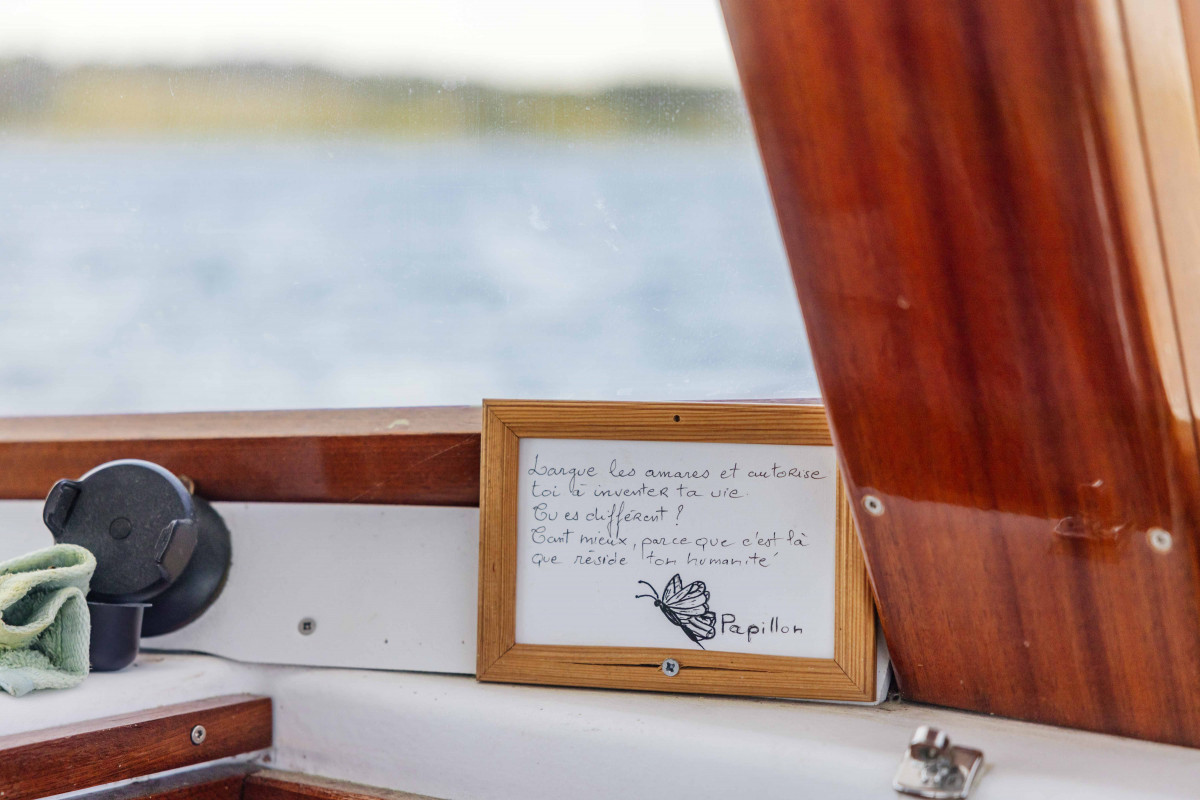 Largue les amares et autorise
toi à inventer ta vie.
Tu es différent ?
Tant mieux, parce que c'est là
que réside ton humanité
Papillon